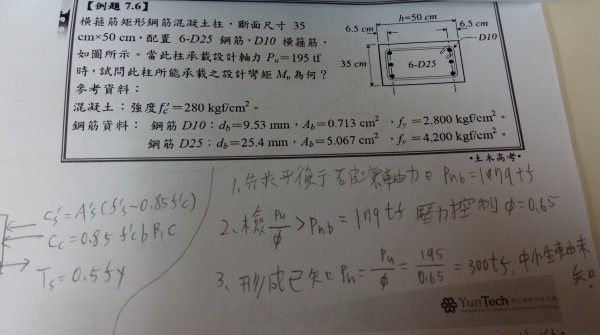 【例題 7.6】
橫箍筋矩形鋼筋混凝土柱,斷面尺寸 35
cm×50 cm,配置 6-D25 鋼筋、D10 橫箍筋,
如圖所示。當此柱承載設計軸力 Pu=195 tf
時,試問此柱所能承載之設計彎矩 Mu 為何?
參考資料:
混凝土:強度 f'c=280 kgf/cm²。
鋼筋資料: 鋼筋 D10:db=9.53 mm,Ab=0.713 cm²,fy=2,800 kgf/cm²。
鋼筋 D25:db=25.4 mm,Ab=5.067 cm²,fy=4,200 kgf/cm²。
h=50 cm
6.5 cm
6.5 cm
D10
35 cm
6-D25
•土木高考•
Cs'=A's(f's-0.85f'c)
Cc=0.85f'cbβ1c
Ts=0.5fy
1.先求平衡 軸力 Pnb=179tf
2、檢 Pu/φ > Pnb = 179tf 壓力控制 φ=0.65
3、形成已知 Pn = Pu/φ = 195/0.65 = 300tf, 中性軸由未
知
YunTech